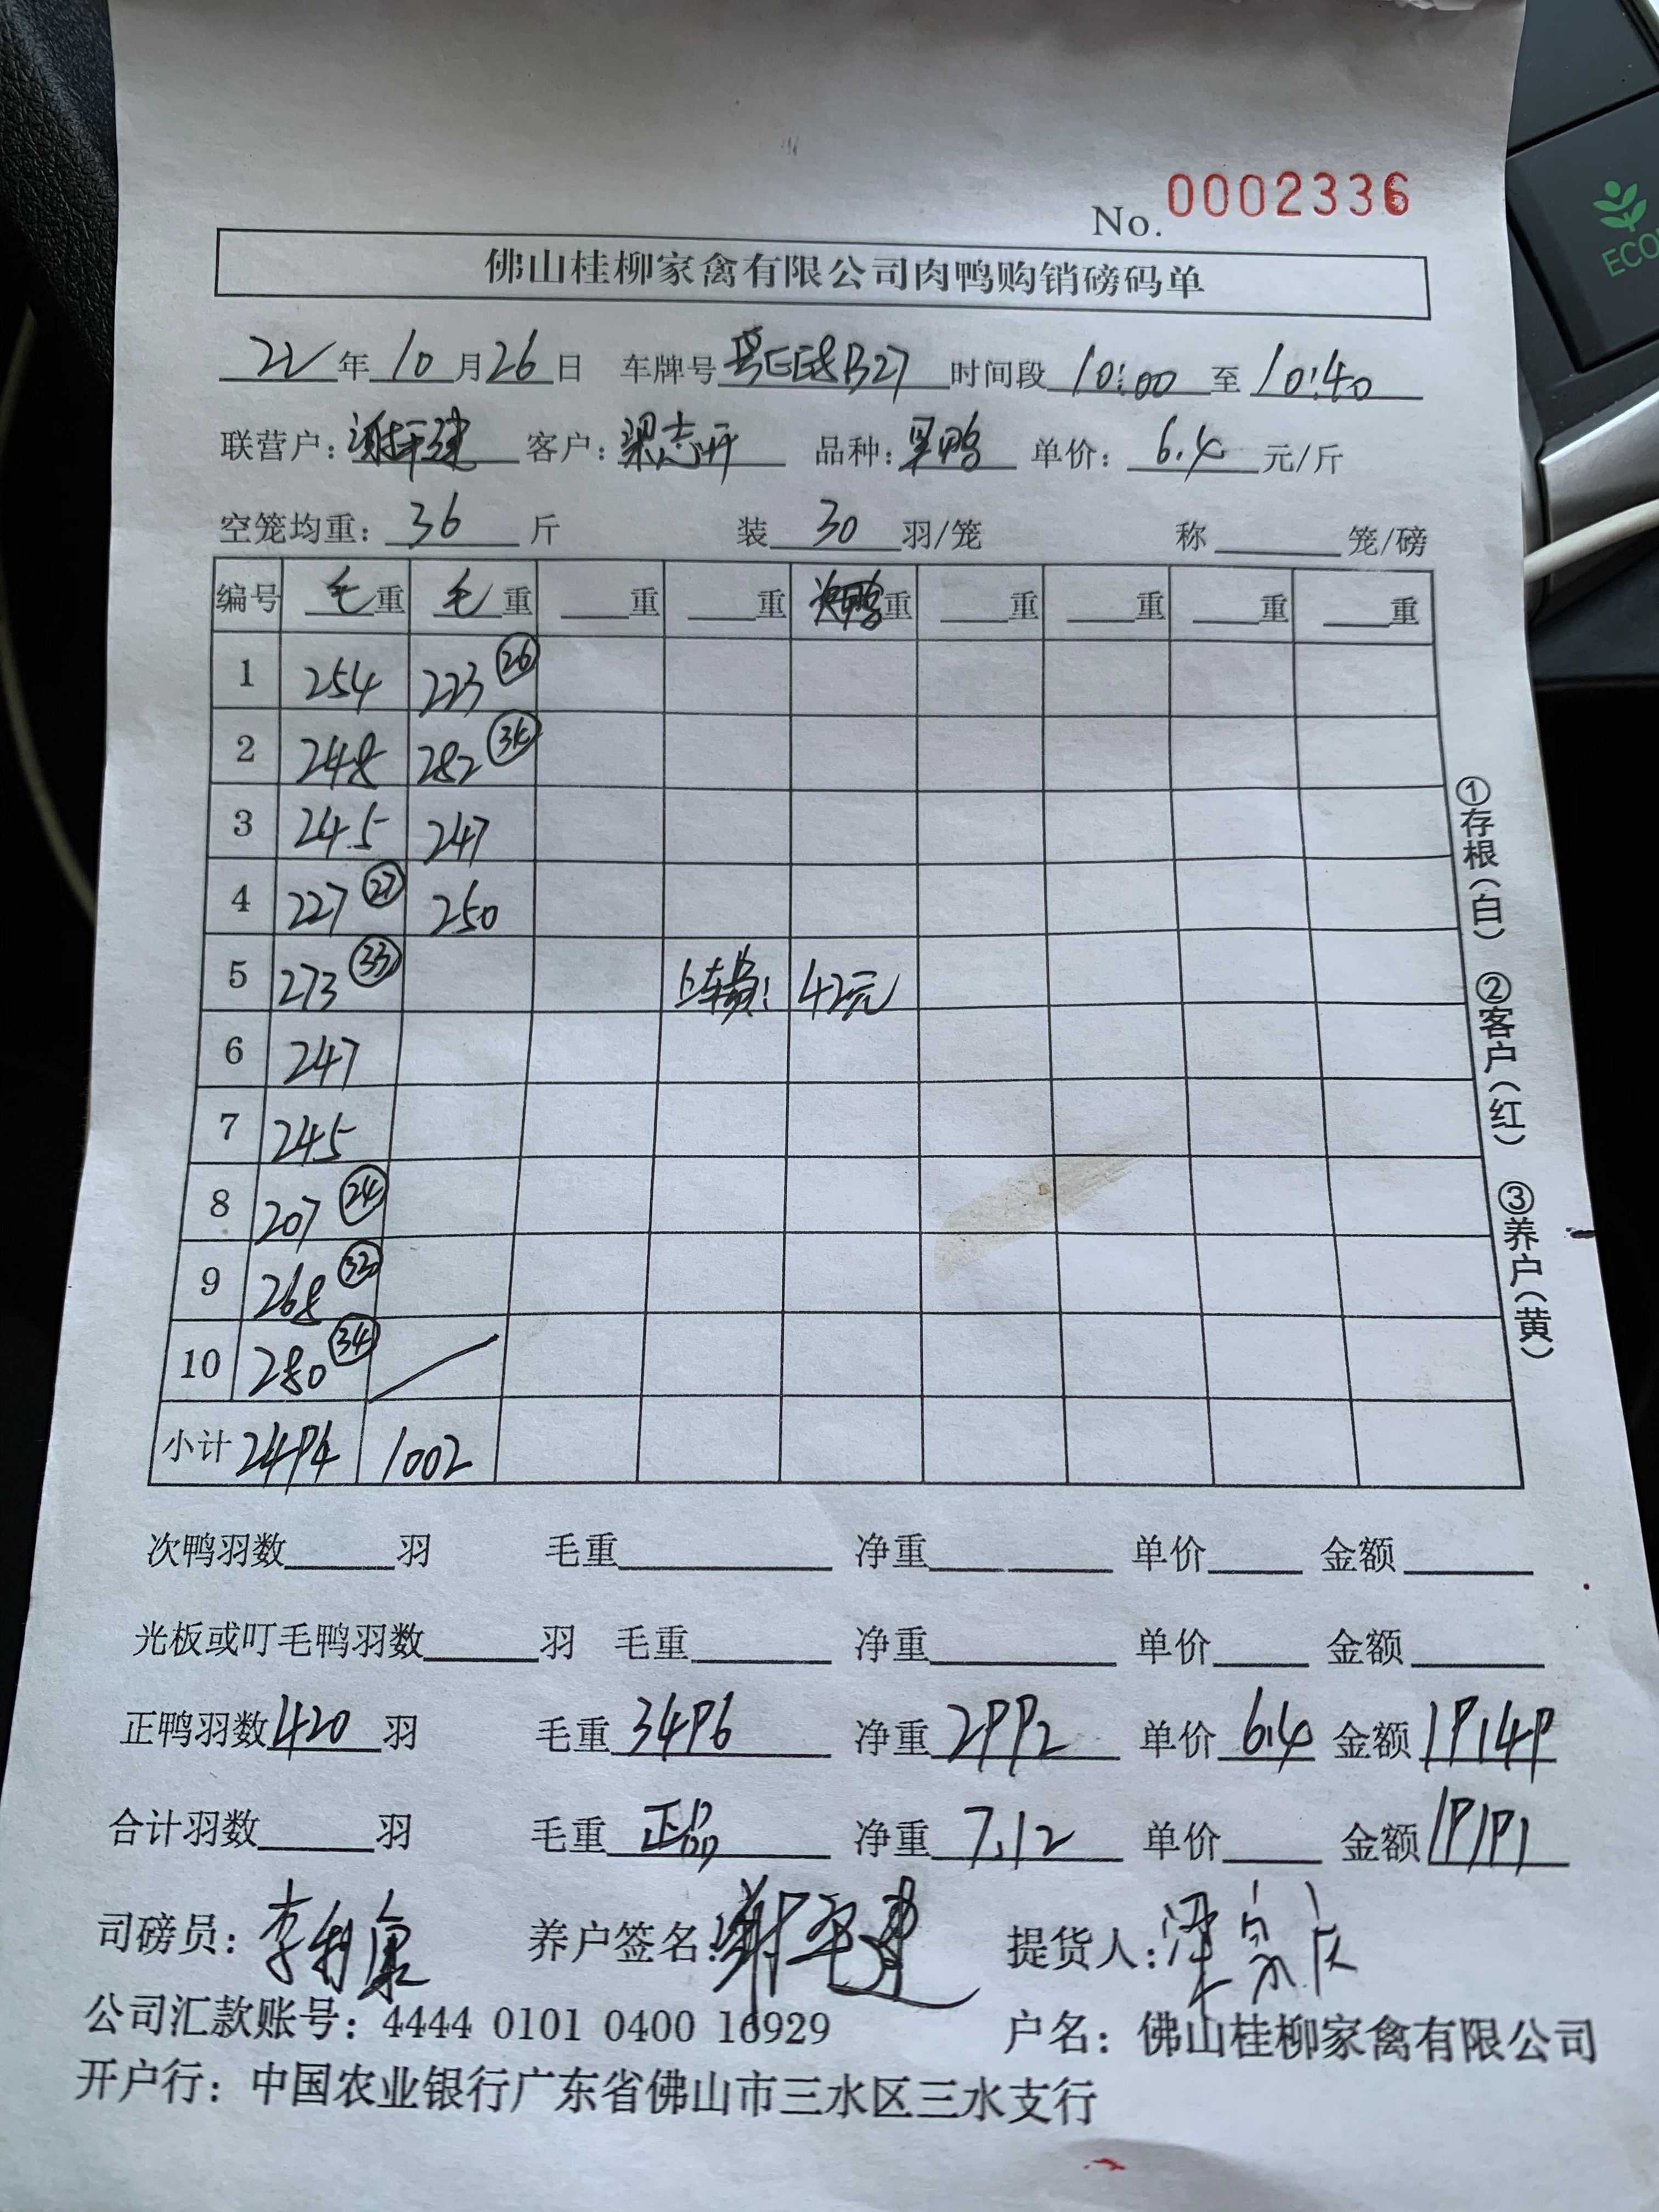 No. 0002336
佛山桂柳家禽有限公司肉鸭购销磅码单
22年10月26日 车牌号 粤EE8B27 时间段 10:00 至 10:40
联营户: 谢平建 客户: 梁志开 品种: 单价: 6.4 元/斤
空笼均重: 36 斤 装 30 羽/笼 称 笼/磅
编号 毛重 毛重 重 重 次鸭重 重 重 重 重
1 254 223 26
2 248 282 34
3 245 247
4 227 27 250
5 273 33 上车费: 42元
6 247
7 245
8 207 24
9 268 32
10 280 34
小计 2494 1002
次鸭羽数 羽 毛重 净重 单价 金额
光板或叮毛鸭羽数 羽 毛重 净重 单价 金额
正鸭羽数 420 羽 毛重 3496 净重 2992 单价 6.4 金额 19149
合计羽数 羽 毛重 正品 净重 7.12 单价 金额 19191
司磅员: 养户签名: 谢平建 提货人:
公司汇款账号: 4444 0101 0400 16929 户名: 佛山桂柳家禽有限公司
开户行: 中国农业银行广东省佛山市三水区三水支行
①存根(白) ②客户(红) ③养户(黄)
ECO